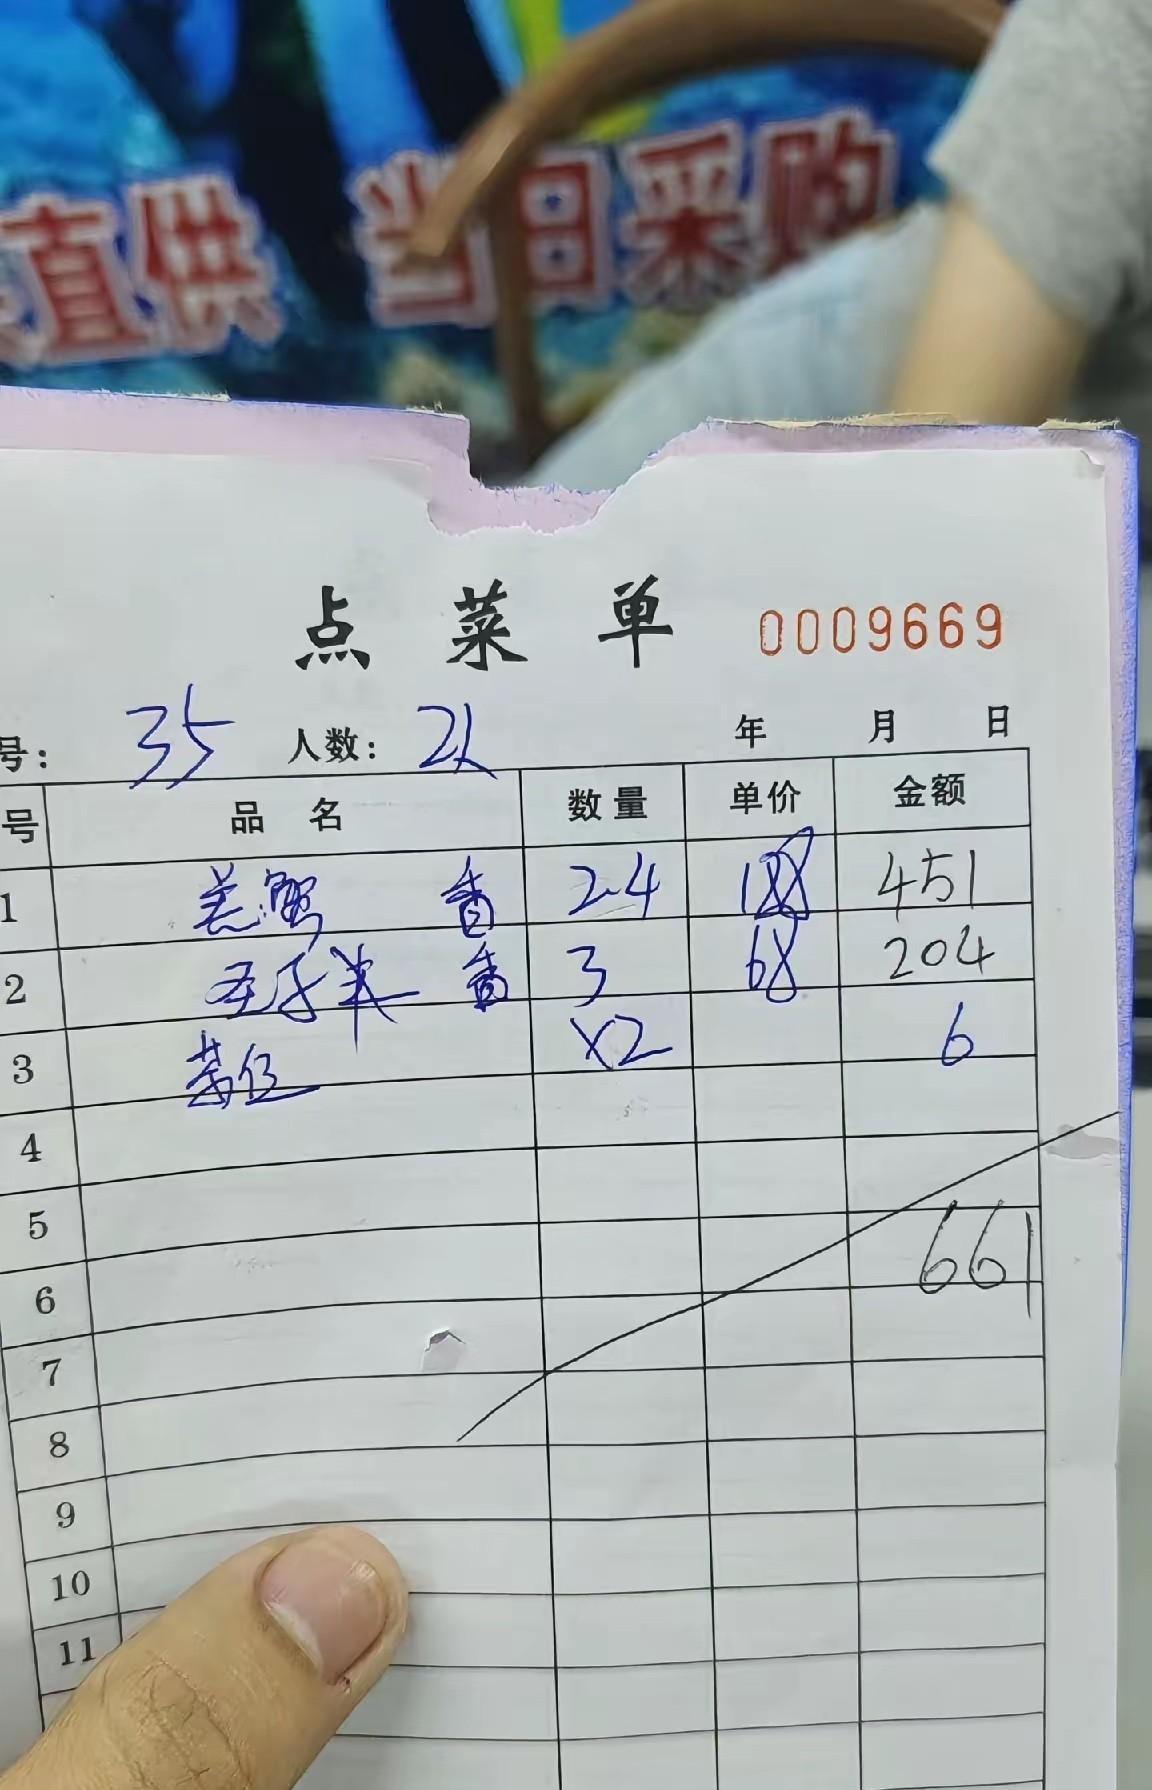 直供 当日采购
点菜单 0009669
号: 35 人数: 2人 年 月 日
号 品名 数量 单价 金额
1 羔蟹 2.4 188 451
2 3 68 204
3 茶位 X2 6
4
5
661
6
7
8
9
10
11